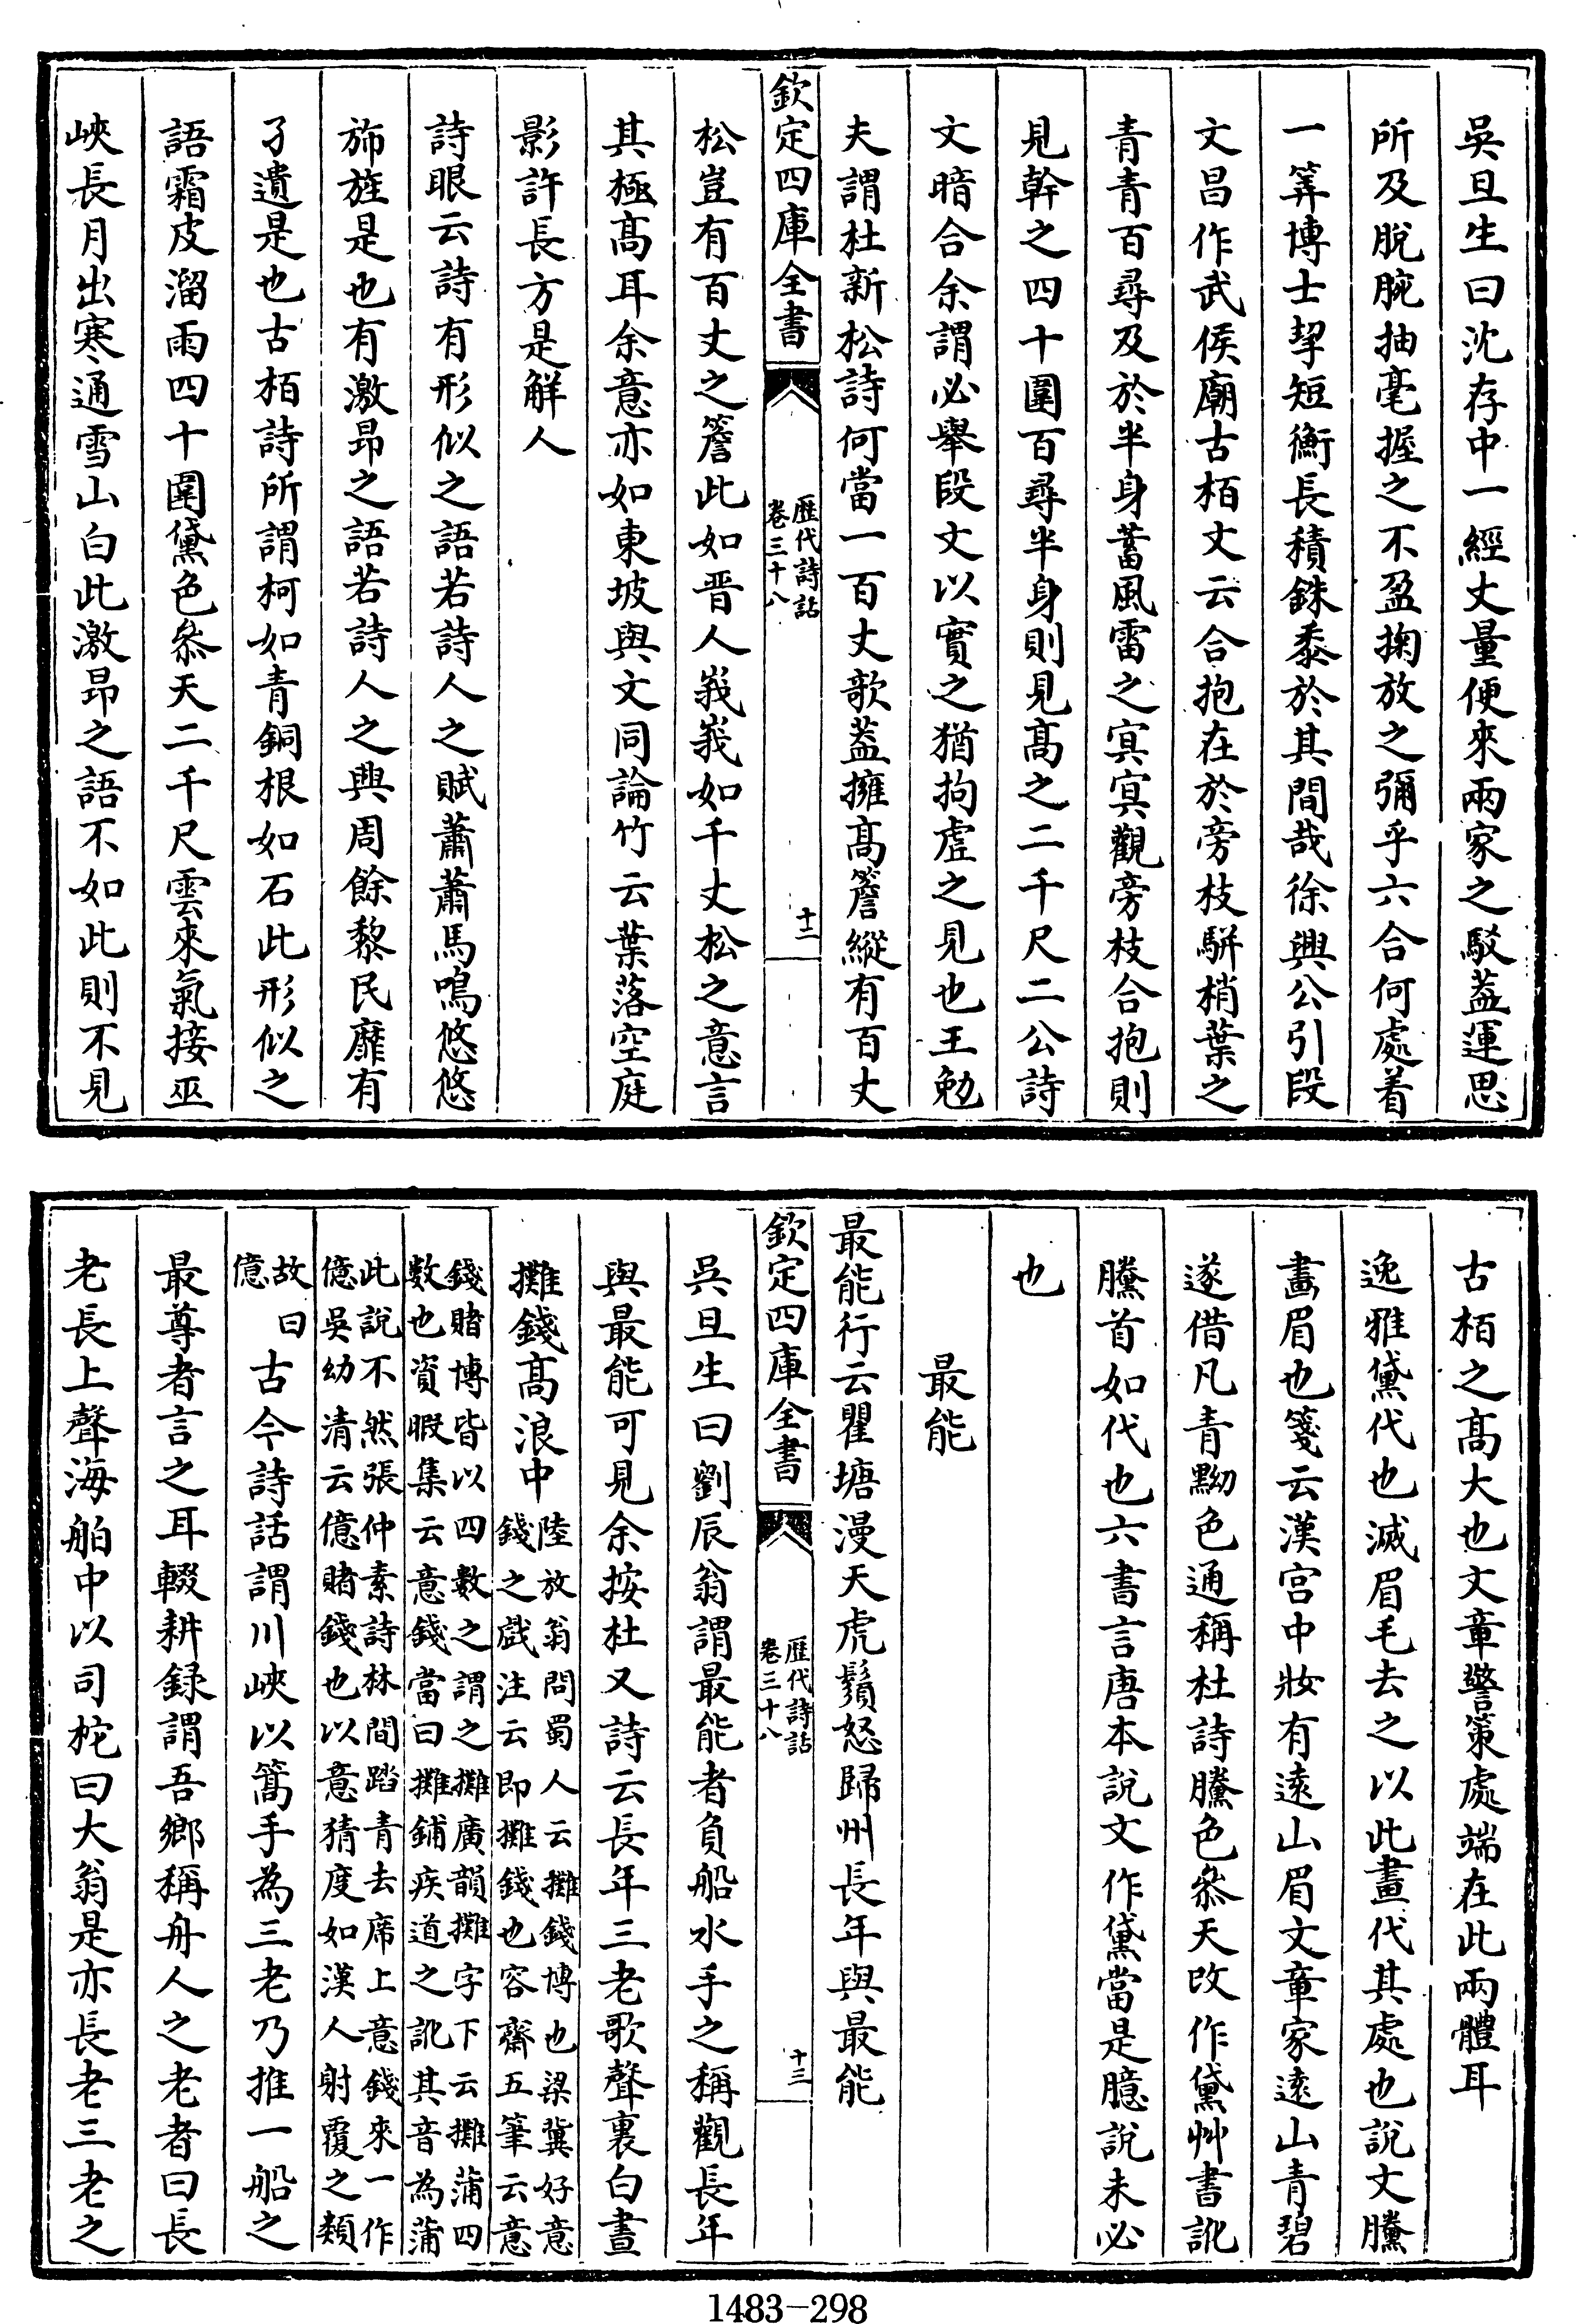 吳旦生曰沈存中一經丈量便來兩家之駁葢運思
所及脫腕抽毫握之不盈掬放之彌乎六合何處着
一筭博士挈短衡長積銖黍於其間哉徐興公引段
文昌作武侯廟古栢文云合抱在於旁枝駢梢葉之
青青百尋及於半身蓄風雷之寞寞觀旁枝合抱則
見幹之四十圍百尋半身則見髙之二千尺二公詩
文暗合余謂必舉段文以實之猶拘虛之見也王勉
夫謂杜新松詩何當一百丈欹葢擁髙簷縱有百丈
欽定四庫全書
歴代詩話
卷三十八
十二
松豈有百丈之簷此如晋人峩峩如千丈松之意言
其極髙耳余意亦如東坡與文同論竹云葉落空庭
影許長方是解人
詩眼云詩有形似之語若詩人之賦蕭蕭馬鳴悠悠
斾旌是也有激昂之語若詩人之興周餘黎民靡有
孑遺是也古栢詩所謂柯如青銅根如石此形似之
語霜皮溜雨四十圍黛色叅天二千尺雲來氣接巫
峽長月出寒通雪山白此激昂之語不如此則不見
古栢之髙大也文章警策處端在此兩體耳
逸雅黛代也滅眉毛去之以此畫代其處也說文黱
畫眉也箋云漢宫中妝有逺山眉文章家逺山青碧
遂借凡青黝色通稱杜詩黱色叅天改作黛艸書訛
黱首如代也六書言唐本說文作黛當是臆說未必
也
最能
最能行云瞿塘漫天虎鬚怒歸州長年與最能
欽定四庫全書
歴代詩話
卷三十八
十三
吳旦生曰劉辰翁謂最能者負船水手之稱觀長年
與最能可見余按杜又詩云長年三老歌聲裏白晝
攤錢髙浪中陸放翁問蜀人云攤錢博也梁冀好意
錢之戱注云即攤錢也容齋五筆云意
錢賭博皆以四數之謂之攤廣韻攤字下云攤蒲四
數也資暇集云意錢當曰攤鋪疾道之訛其音為蒲
此說不然張仲素詩林間踏青去席上意錢來一作
億吳幼清云億賭錢也以意猜度如漢人射覆之類
故曰
億古今詩話謂川峽以篙手為三老乃推一船之
最尊者言之耳輟耕録謂吾鄉稱舟人之老者曰長
老長上聲海舶中以司柁曰大翁是亦長老三老之
1483-298